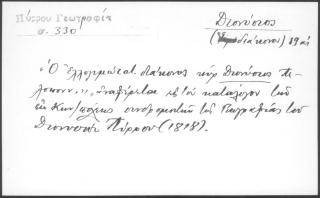 Πύρρου Γεωγραφία
σ. 330
Διονύσιος
(διάκονος) 19 αἰ
"Ὁ ἐλλογιμώτατ. διάκονος κύρ Διονύσιος Πε-
λοπονν.", ἀναφέρεται εἰς τὸν κατάλογον τῶν
ἐν Κων/πόλει συνδρομητῶν τῆς Γεωγραφίας τοῦ
Διονυσίου Πύρρου (1818).